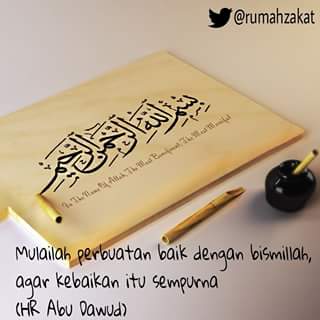 @rumahzakat
بسم الله الرحمن الرحيم
In The Name Of Allah, The Most Beneficent, The Most Merciful
Mulailah perbuatan baik dengan bismillah,
agar kebaikan itu sempurna
(HR Abu Dawud)